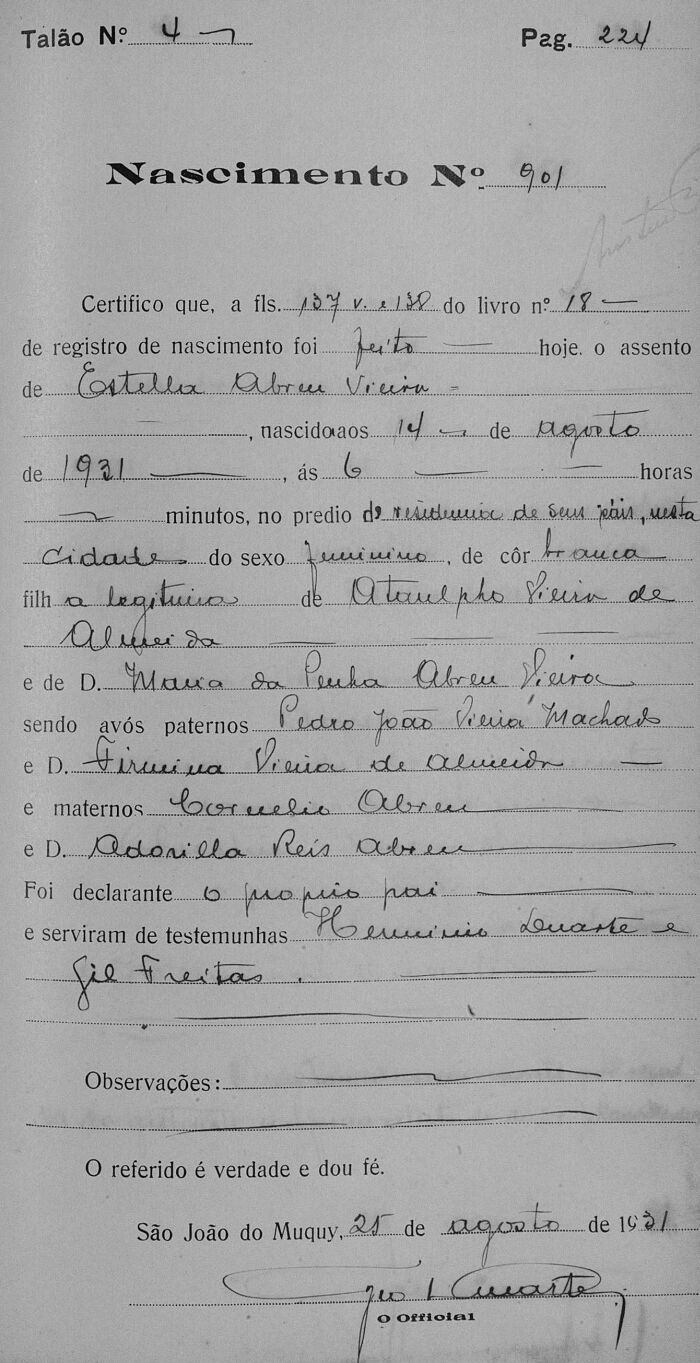 Talão Nº 4 Pag. 224
Nascimento Nº 901
Certifico que, a fls. 137 v. e 138 do livro nº 18
de registro de nascimento foi feito hoje. o assento
de Estella Abreu Vieira
, nascida aos 14 de agosto
de 1931 , ás 6 horas
minutos, no predio de residencia de seus páis, nesta
cidade do sexo feminino, de côr branca
filha legitima de Ataulpho Vieira de
Almeida
e de D. Maria da Penha Abreu Vieira
sendo avós paternos Pedro João Vieira Machado
e D. Firmina Vieira de Almeida
e maternos Cornelio Abreu
e D. Adorilla Reis Abreu
Foi declarante o proprio pai
e serviram de testemunhas Herminio Duarte e
Gil Freitas.
Observações:
O referido é verdade e dou fé.
São João do Muquy, 25 de agosto de 1931
Duarte
O Official